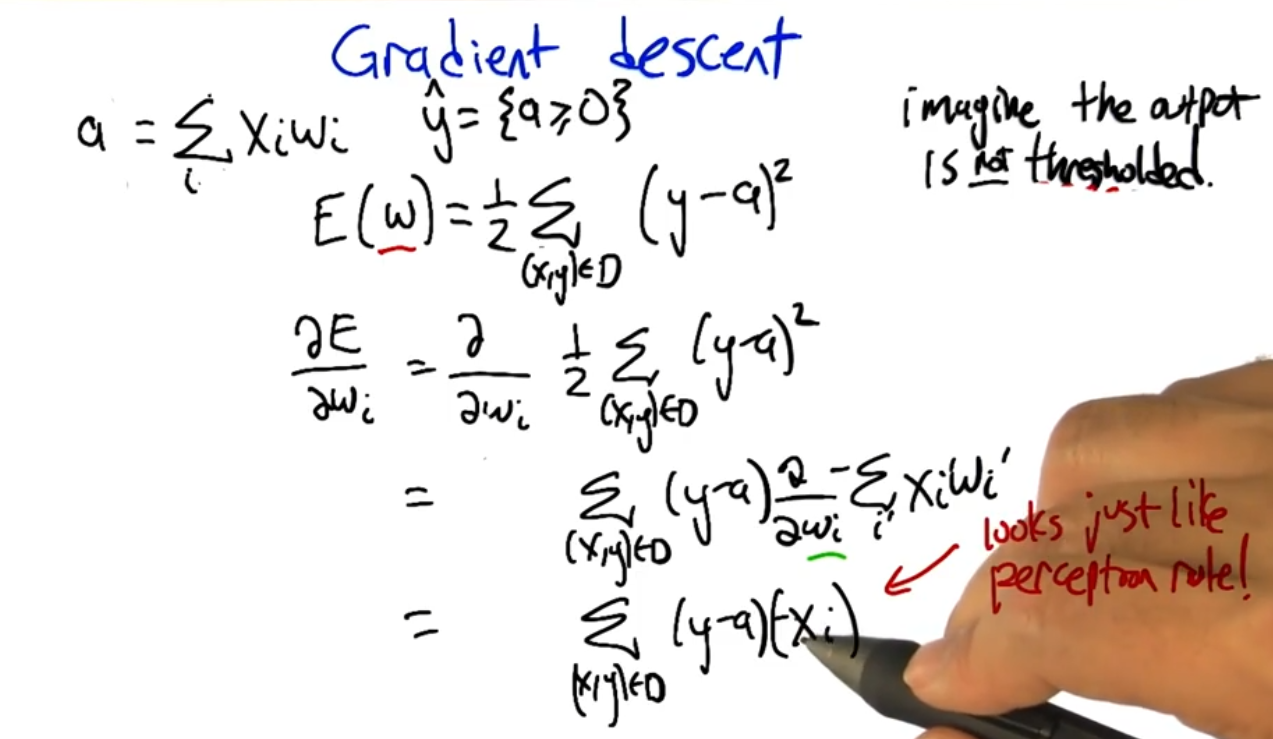 Gradient descent
a = Σ_i x_i w_i    ŷ = {a ≥ 0}
imagine the output
is not thresholded.
E(w) = 1/2 Σ_{(x,y)∈D} (y-a)²
∂E/∂w_i = ∂/∂w_i 1/2 Σ_{(x,y)∈D} (y-a)²
= Σ_{(x,y)∈D} (y-a) ∂/∂w_i -Σ_{i'} x_i w_i'
looks just like
perceptron rule!
= Σ_{(x,y)∈D} (y-a)(-x_i)